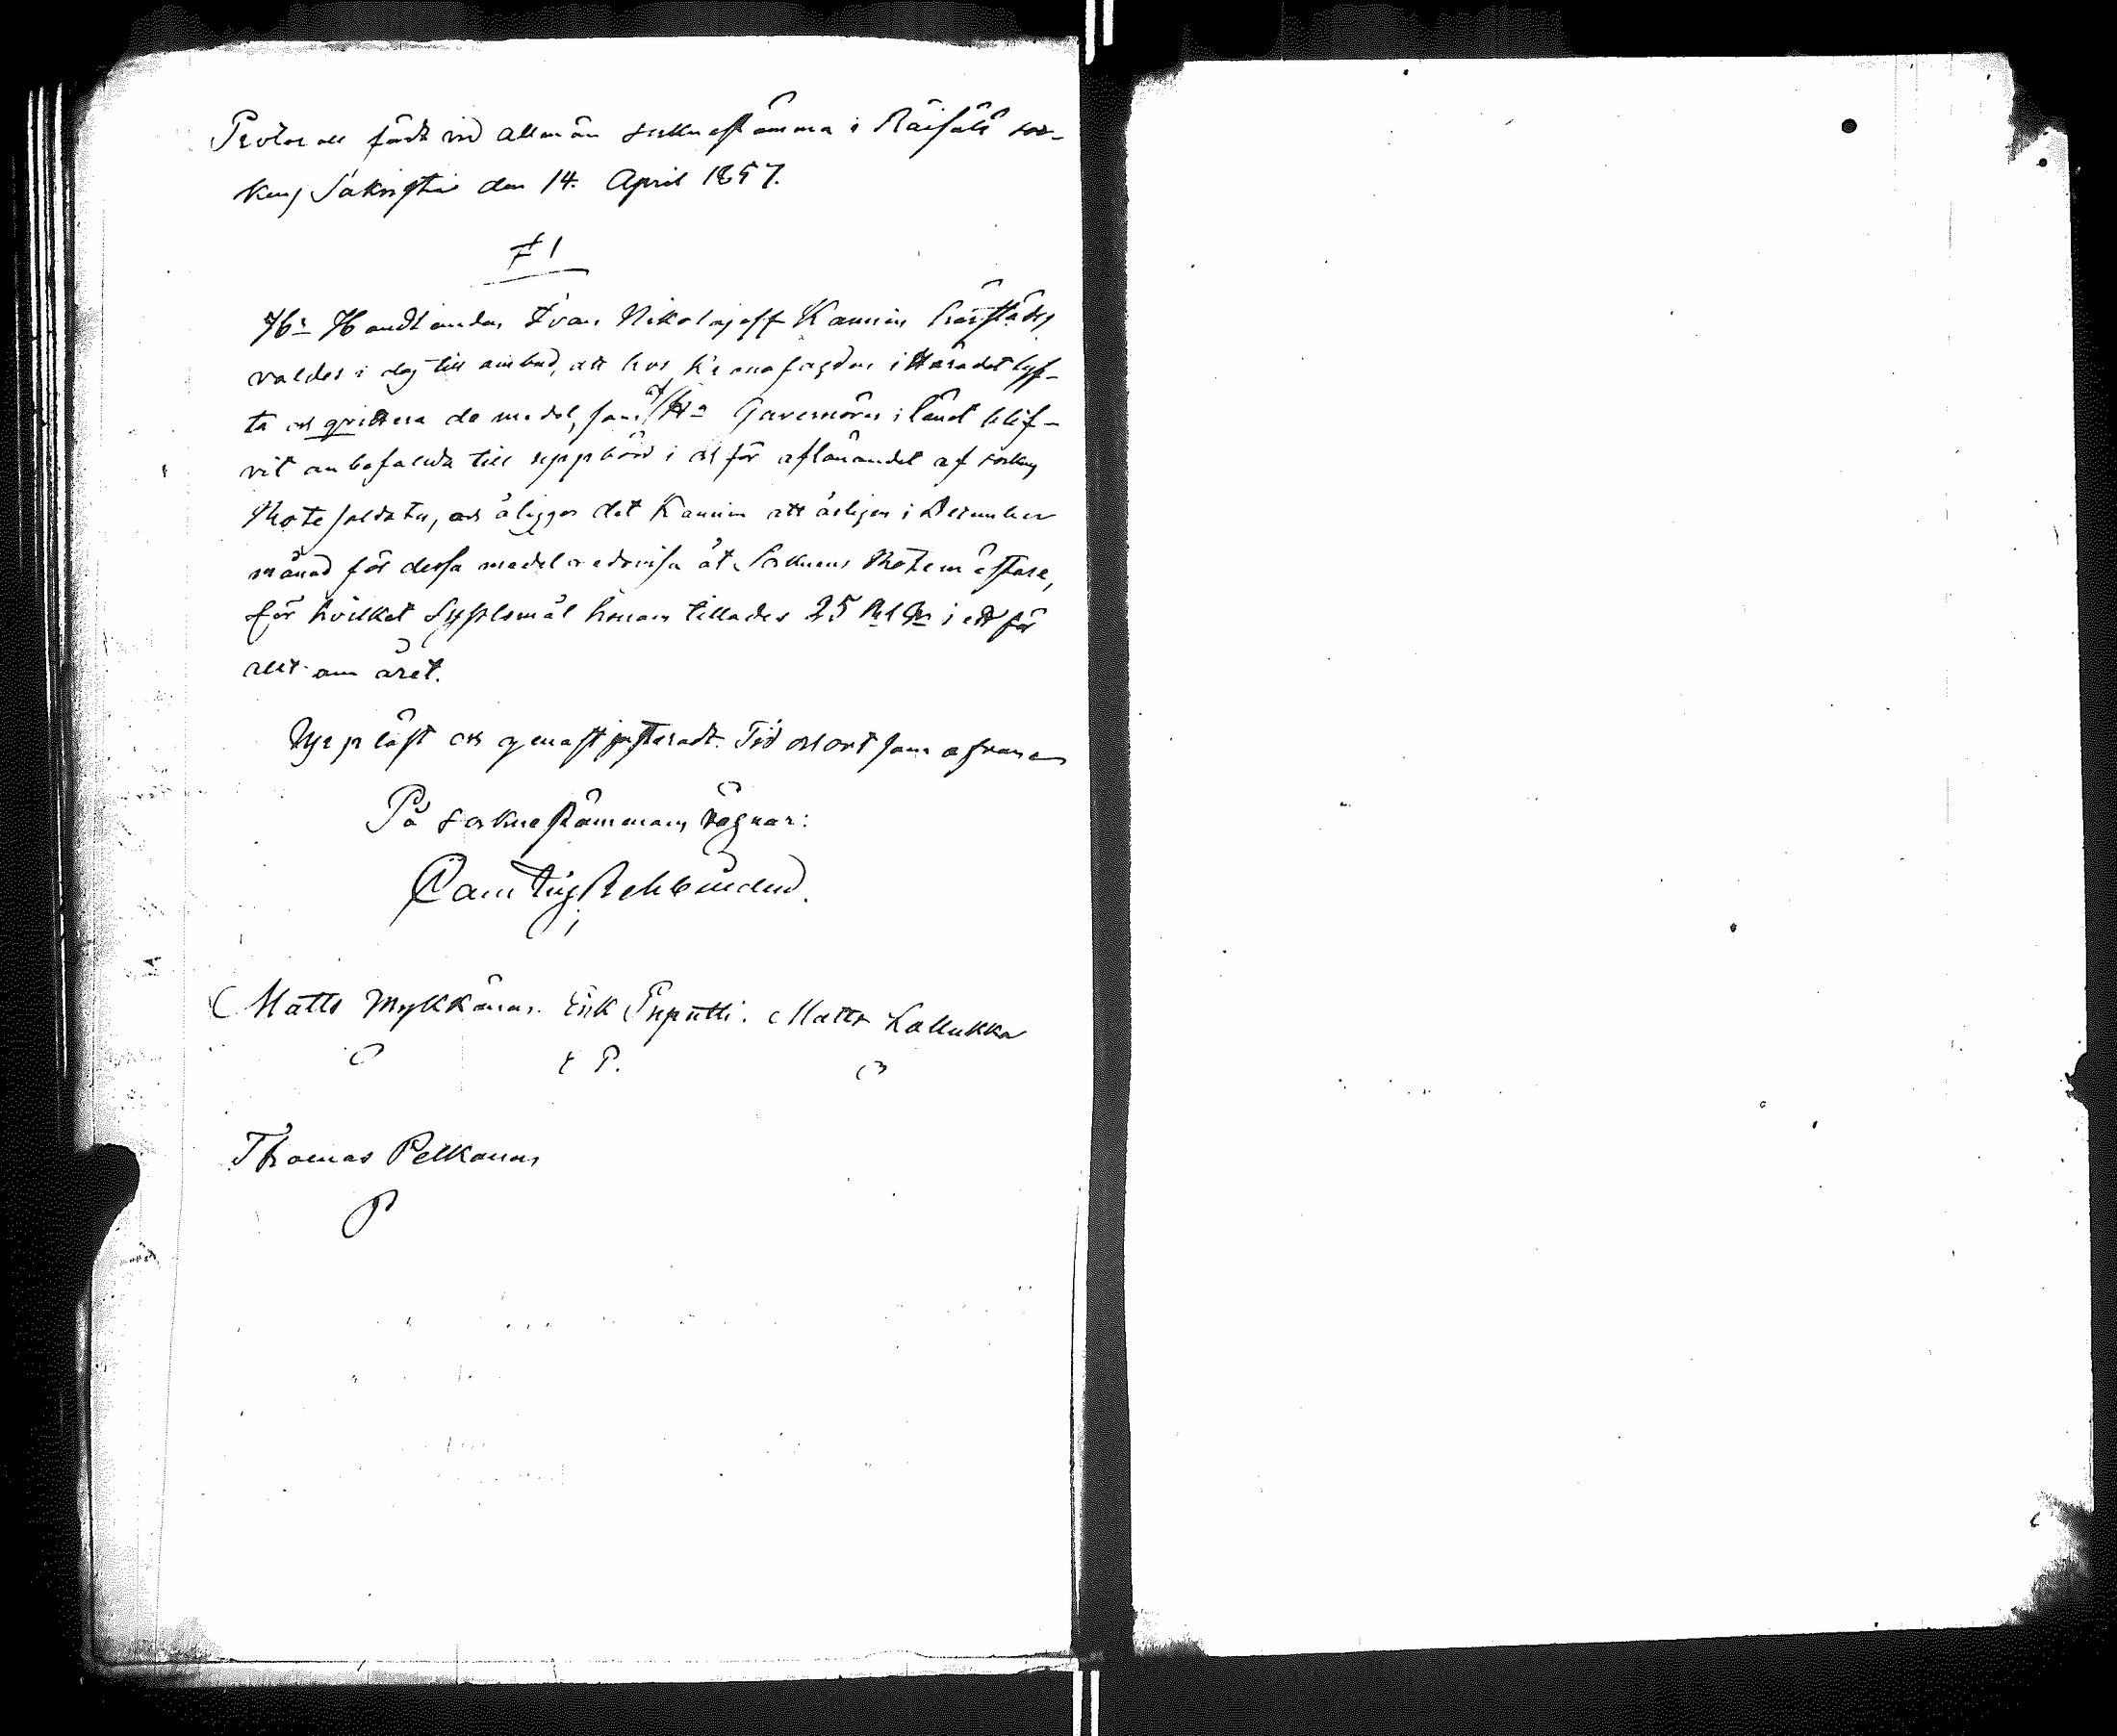 Protocoll fördt vid allmän sockne stämma i Räisälä soc-
kens Sakristia den 14. April 1857.
§ 1
Hr Handlanden Ivan Nikolajeff Kaunin härstädes
valdes i dag till ombud, att hos Kronofogden i Häradet lyf-
ta och qvittera de medel, som af Hr Gouvernören i länet blif-
vit anbefallda till uppbörd i och för aflönandet af sockens
Rotesoldater, och åligger det Kaunin att årligen i December
månad för dessa medel redovisa åt Socknens Rotemästare,
för hvilket sysslomål honom tillades 25 Rbl Sr i ett för
allt om året.
Uppläst och genast justeradt. Tid och ort som ofvan
På Sockne stämmans vägnar:
Rehbinder.
Matts Mykkänen. Erik Puputti. Matts Lallukka
E P.
Thomas Pelkonen
P